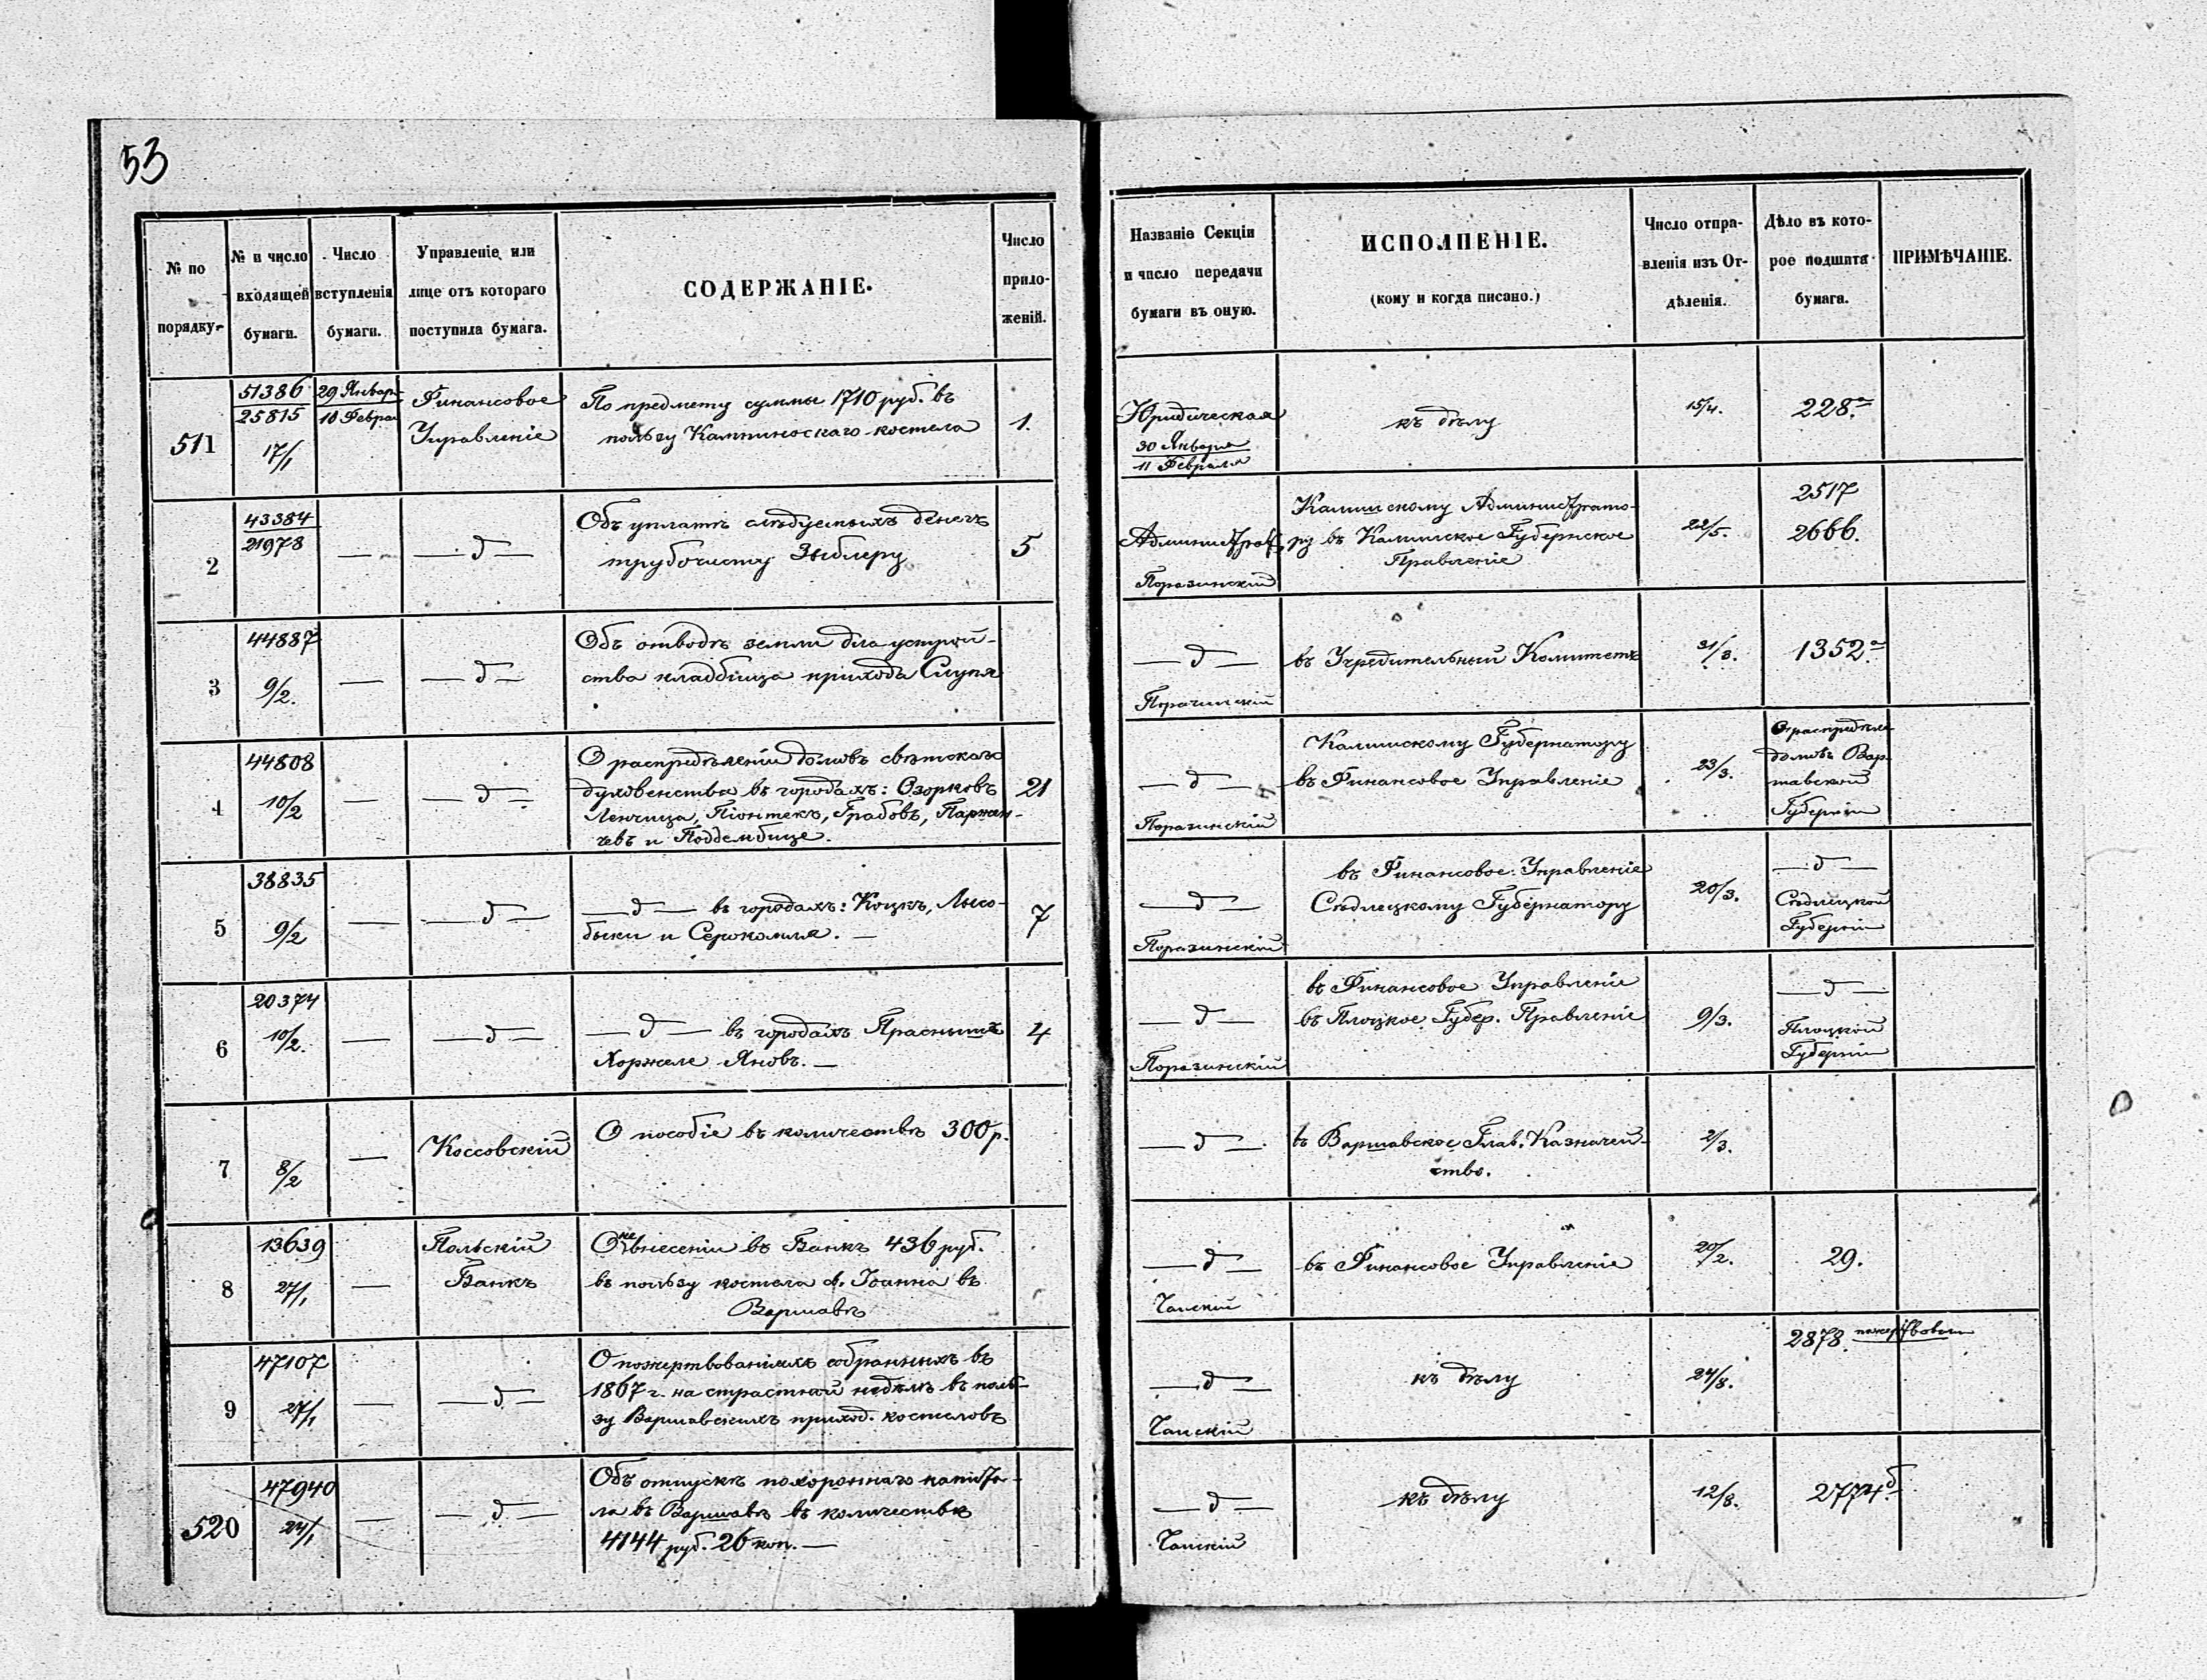 53
№ по порядку.
№ и число входящей бумаги.
Число вступленія бумаги.
Управленіе или лице отъ котораго поступила бумага.
СОДЕРЖАНІЕ.
Число приложеній.
Названіе Секціи и число передачи бумаги въ оную.
ИСПОЛНЕНІЕ.
(кому и когда писано.)
Число отправленія изъ Отдѣленія.
Дѣло въ которое подшита бумага.
ПРИМѢЧАНІЕ.
511
51386
25815
17/1
29 Январ
10 Феврал
Финансовое
Управленіе
По предмету суммы 1710 руб. въ
пользу Кампиноскаго костела
1.
Юридическая
30 Января
11 Февраля
къ дѣлу
15/4.
228.а
2
43384
21978
—
— д —
Объ уплатѣ слѣдуемыхъ денегъ
трубочисту Зыблеру
5
Администрат
Поразинскій
Калишскому Администрато-
ру въ Калишское Губернское
Правленіе
22/5.
2517
2666.
3
44887
9/2.
—
— д —
Объ отводѣ земли для устрой-
ства кладбища прихода Слупя
— д —
Поразинскій
въ Учредительный Комитетъ
31/8.
1352.а
4
44808
10/2
—
— д —
О распредѣленіи домовъ свѣтскаго
духовенства въ городахъ: Озорковъ
Ленчица, Піонтекъ, Грабовъ, Паржен-
чевъ и Поддембице.
21
— д —
Поразинскій
Калишскому Губернатору
въ Финансовое Управленіе
23/3.
О распредѣле
домовъ Вар-
шавской
Губерніи
5
38835
9/2
—
— д —
— д — въ городахъ: Коцкъ, Лысо-
быки и Серокомля. —
7
— д —
Поразинскій
въ Финансовое Управленіе
Сѣдлецкому Губернатору
20/3.
— д —
Сѣдлецкой
Губерніи
6
20374
10/2.
—
— д —
— д — въ городахъ Праснышъ
Хоржеле Яновъ. —
4
— д —
Поразинскій
въ Финансовое Управленіе
въ Плоцкое Губер. Правленіе
9/3.
— д —
Плоцкой
Губерніи
7
8/2
—
Коссовскій
О пособіе въ количествѣ 300 р.
— д —
въ Варшавское Глав. Казначей-
ство.
2/3.
8
13639
27/1
—
Польскій
Банкъ
О не внесеніи въ Банкъ 436 руб.
въ пользу костела св. Іоанна въ
Варшавѣ
— д —
Чапскій
въ Финансовое Управленіе
20/2.
29.
9
47107
27/1
—
— д —
О пожертвованіяхъ собранныхъ въ
1867 г. на страстной недѣлѣ въ поль-
зу Варшавскихъ приход. костеловъ
— д —
Чапскій
къ дѣлу
24/8.
2878.
520
47940
24/1
—
— д —
Объ отпускѣ похороннаго капита-
ла въ Варшавѣ въ количествѣ
4144 руб. 26 коп. —
— д —
Чапскій
къ дѣлу
12/8.
2774.б